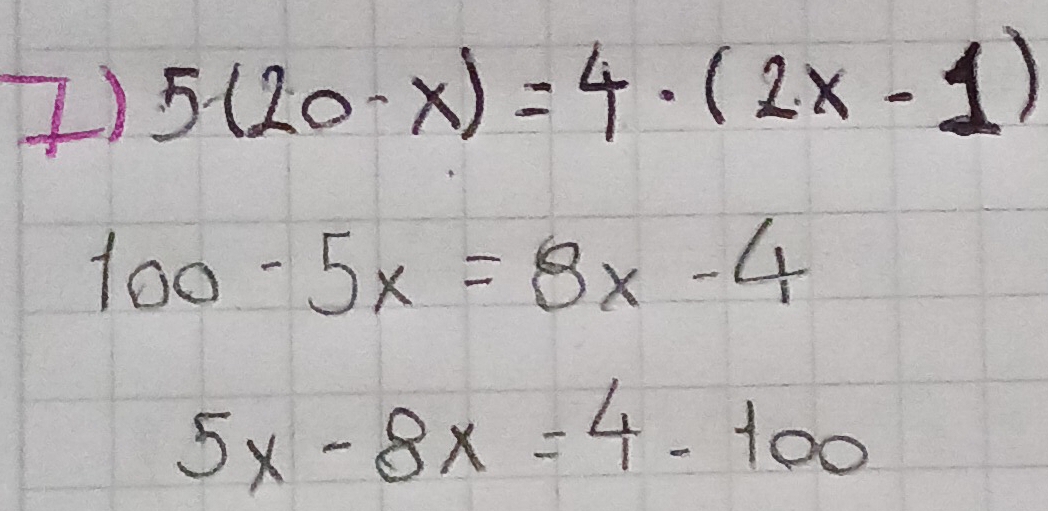 I) 5·(20 - x) = 4 · (2x - 1)
100 - 5x = 8x - 4
5x - 8x = 4 - 100